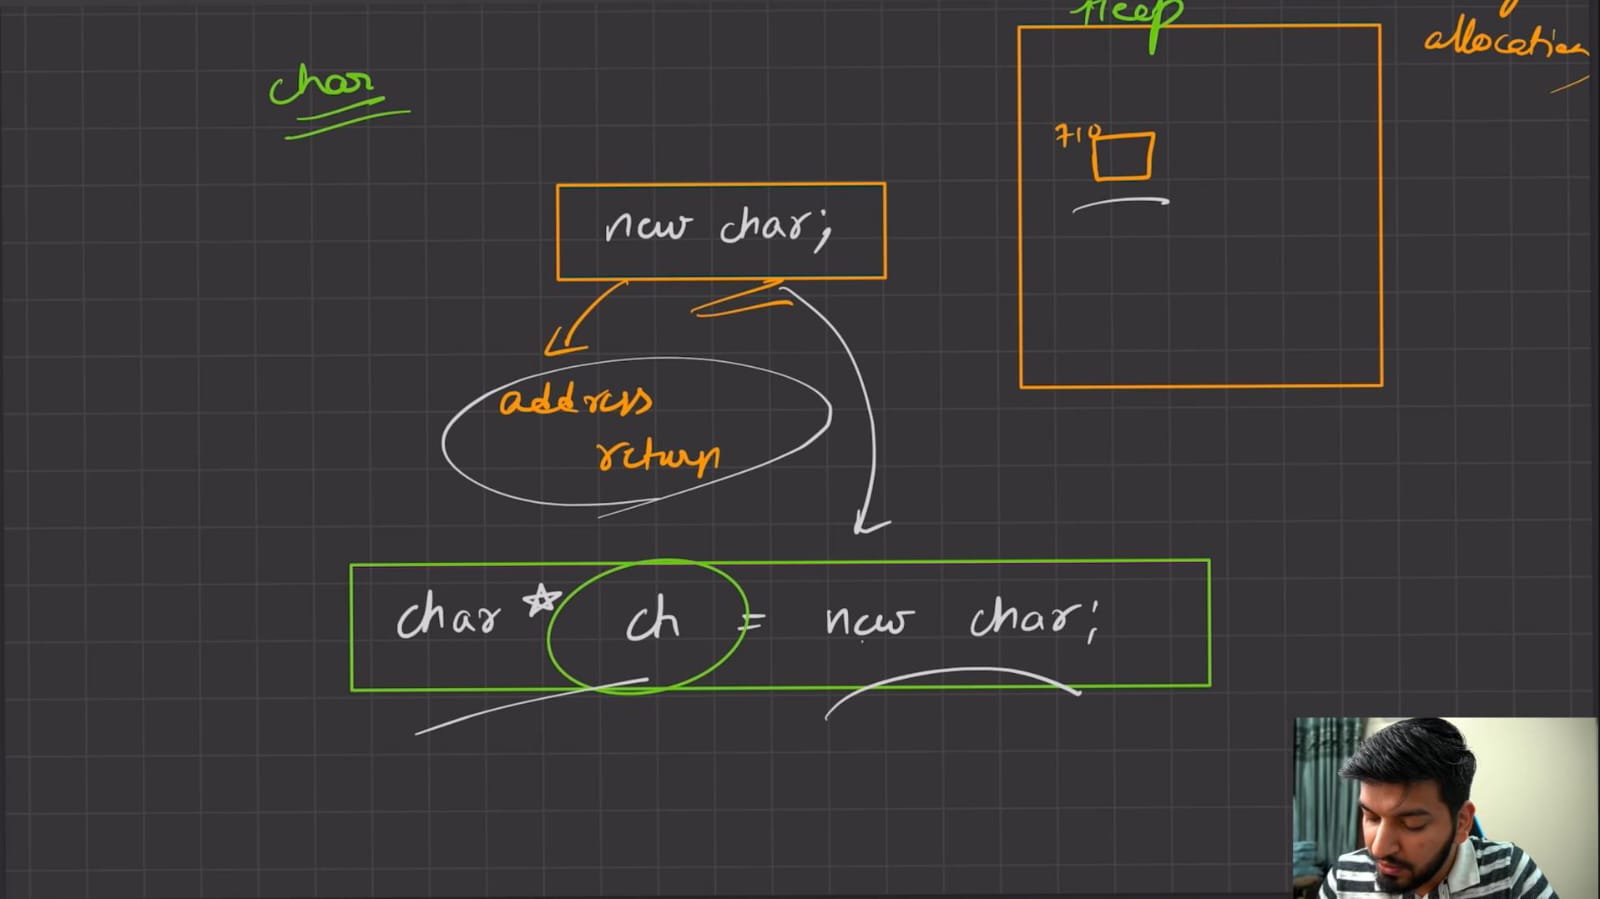 Heep
allocation
char
710
new char;
address
return
char * ch = new char;